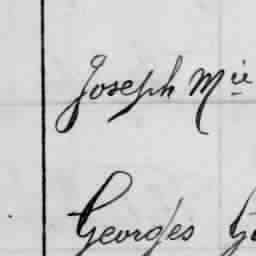 Joseph Mie
Georges